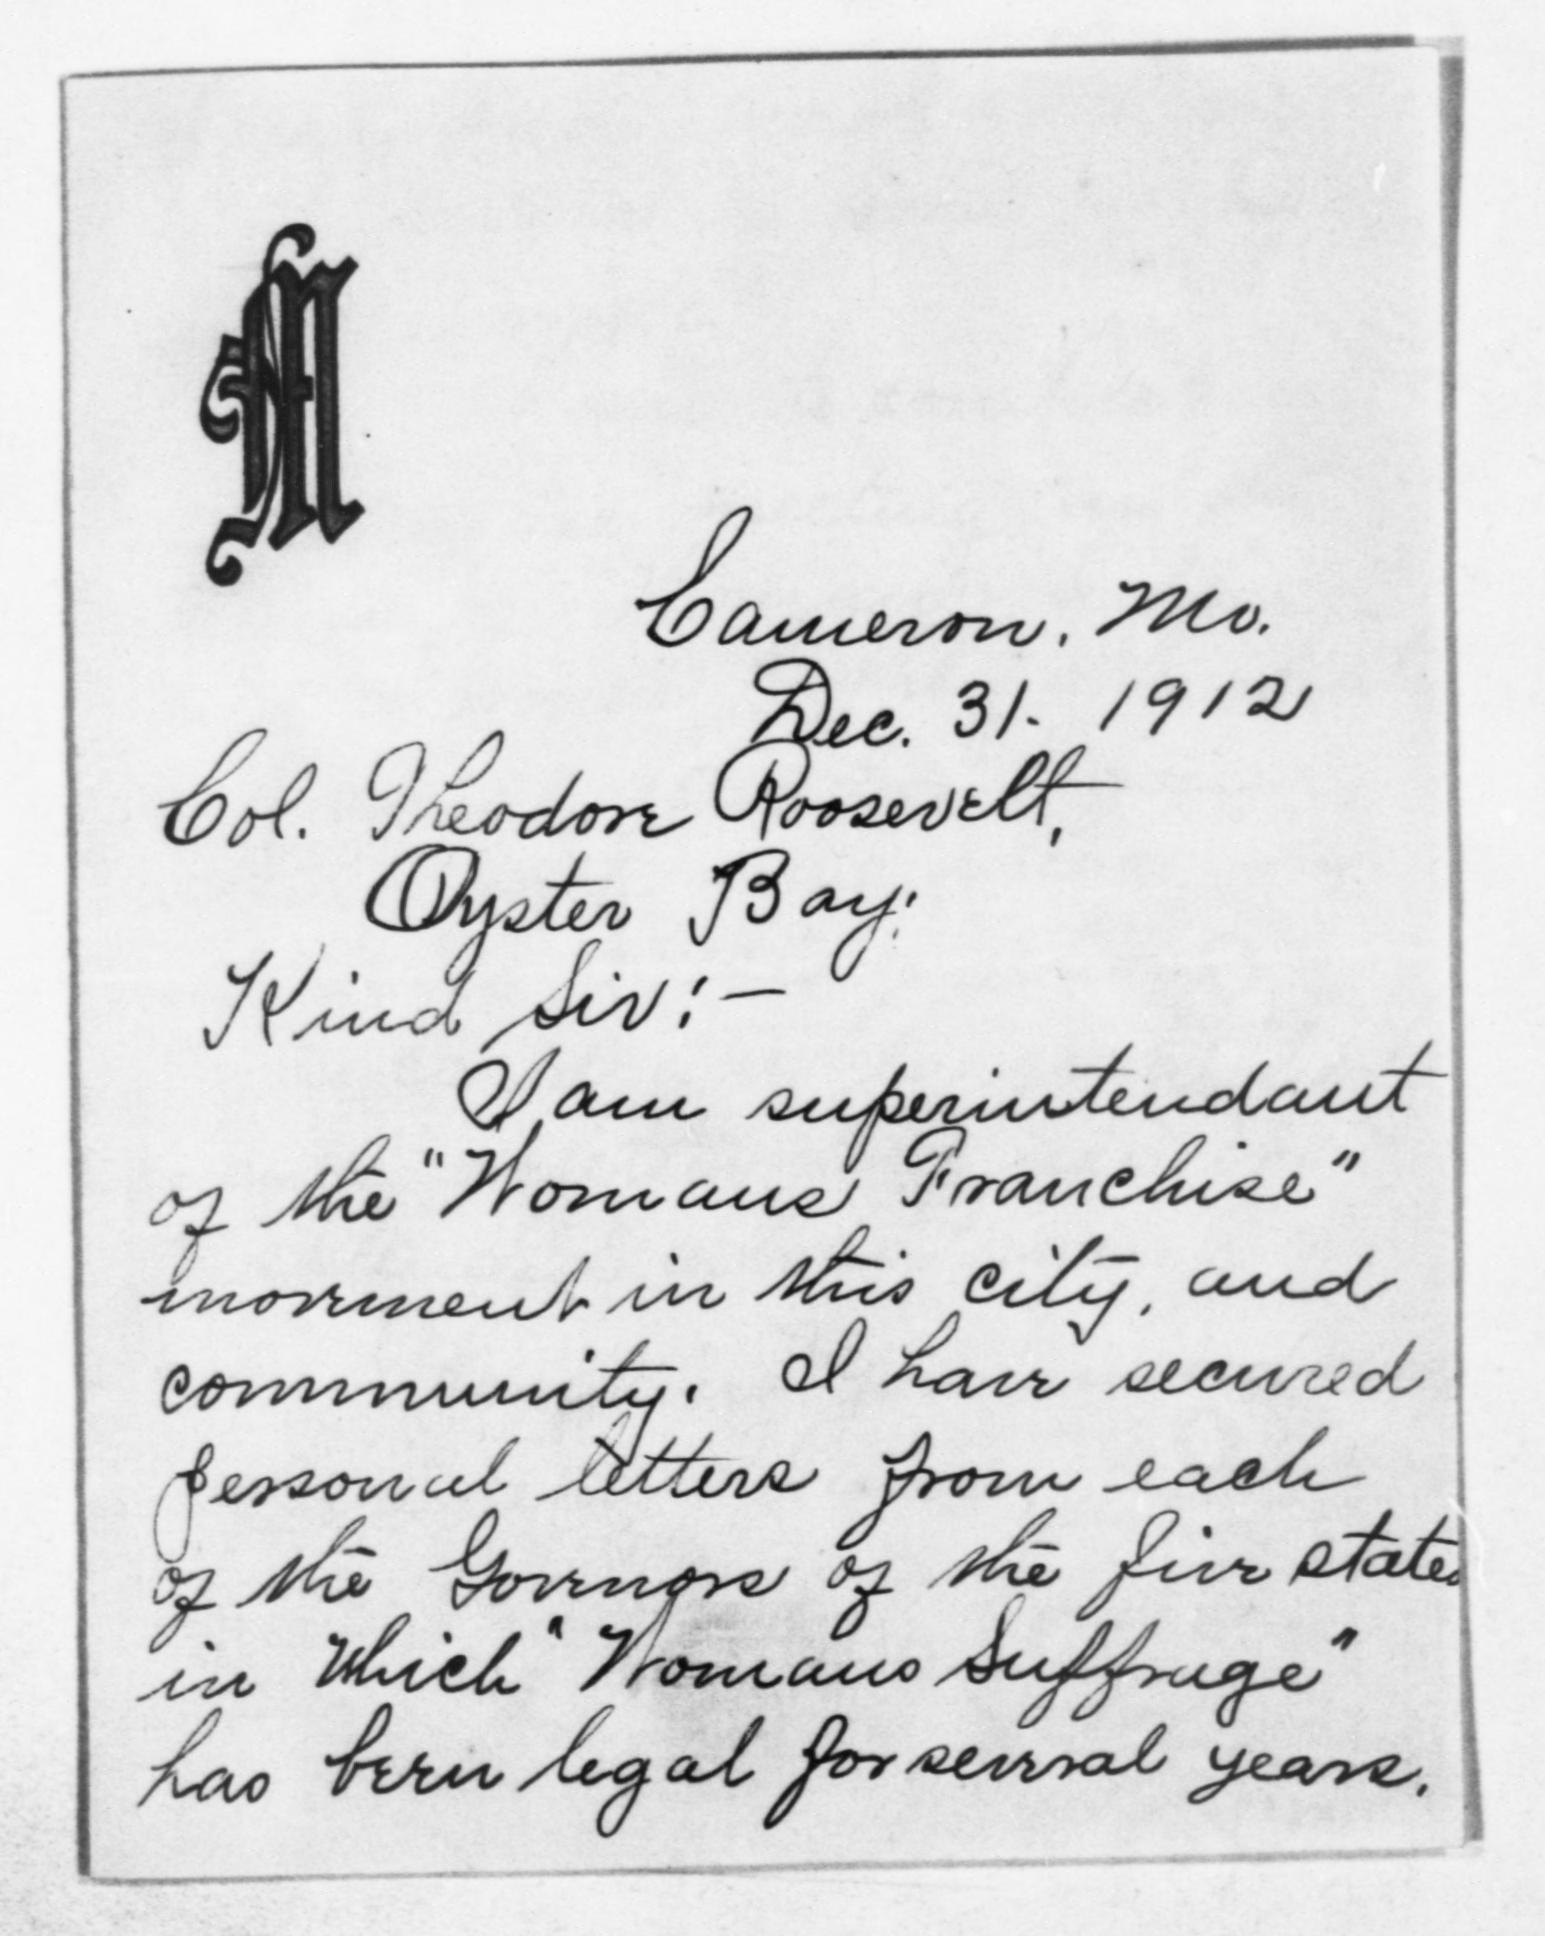 Cameron, Mo.
Dec. 31. 1912
Col. Theodore Roosevelt,
Oyster Bay:
Kind Sir:—
I am superintendant
of the "Womans Franchise"
movement in this city, and
community. I have secured
personal letters from each
of the Governors of the five states
in which "Womans Suffrage"
has been legal for several years.